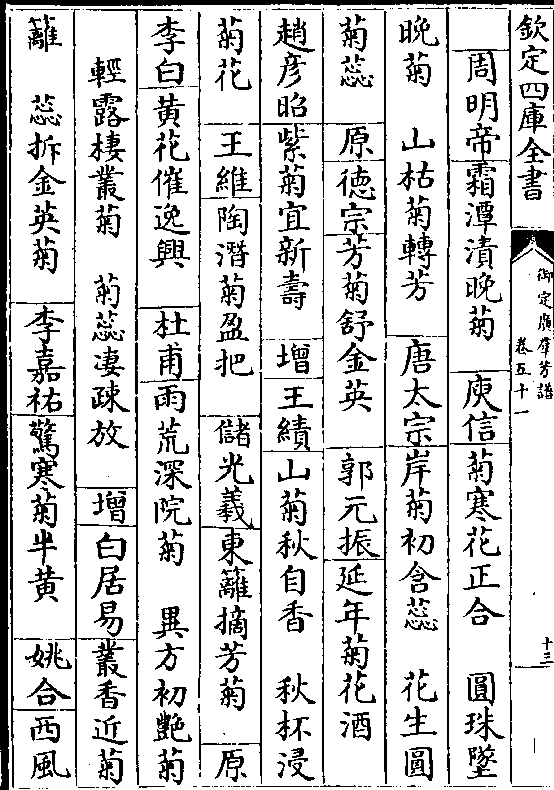 欽定四庫全書
御定廣羣芳譜
卷五十一
十三
周明帝霜潭漬晚菊 庾信菊寒花正合 圓珠墜
晚菊 山枯菊轉芳 唐太宗岸菊初含蕊 花生圓
菊蕊 原德宗芳菊舒金英 郭元振延年菊花酒
趙彥昭紫菊宜新壽 增王績山菊秋自香 秋杯浸
菊花 王維陶潛菊盈把 儲光羲東籬摘芳菊 原
李白黃花催逸興 杜甫雨荒深院菊 異方初艷菊
輕露棲叢菊 菊蕊凄疎放 增白居易叢香近菊
籬 蕊拆金英菊 李嘉祐驚寒菊半黃 姚合西風